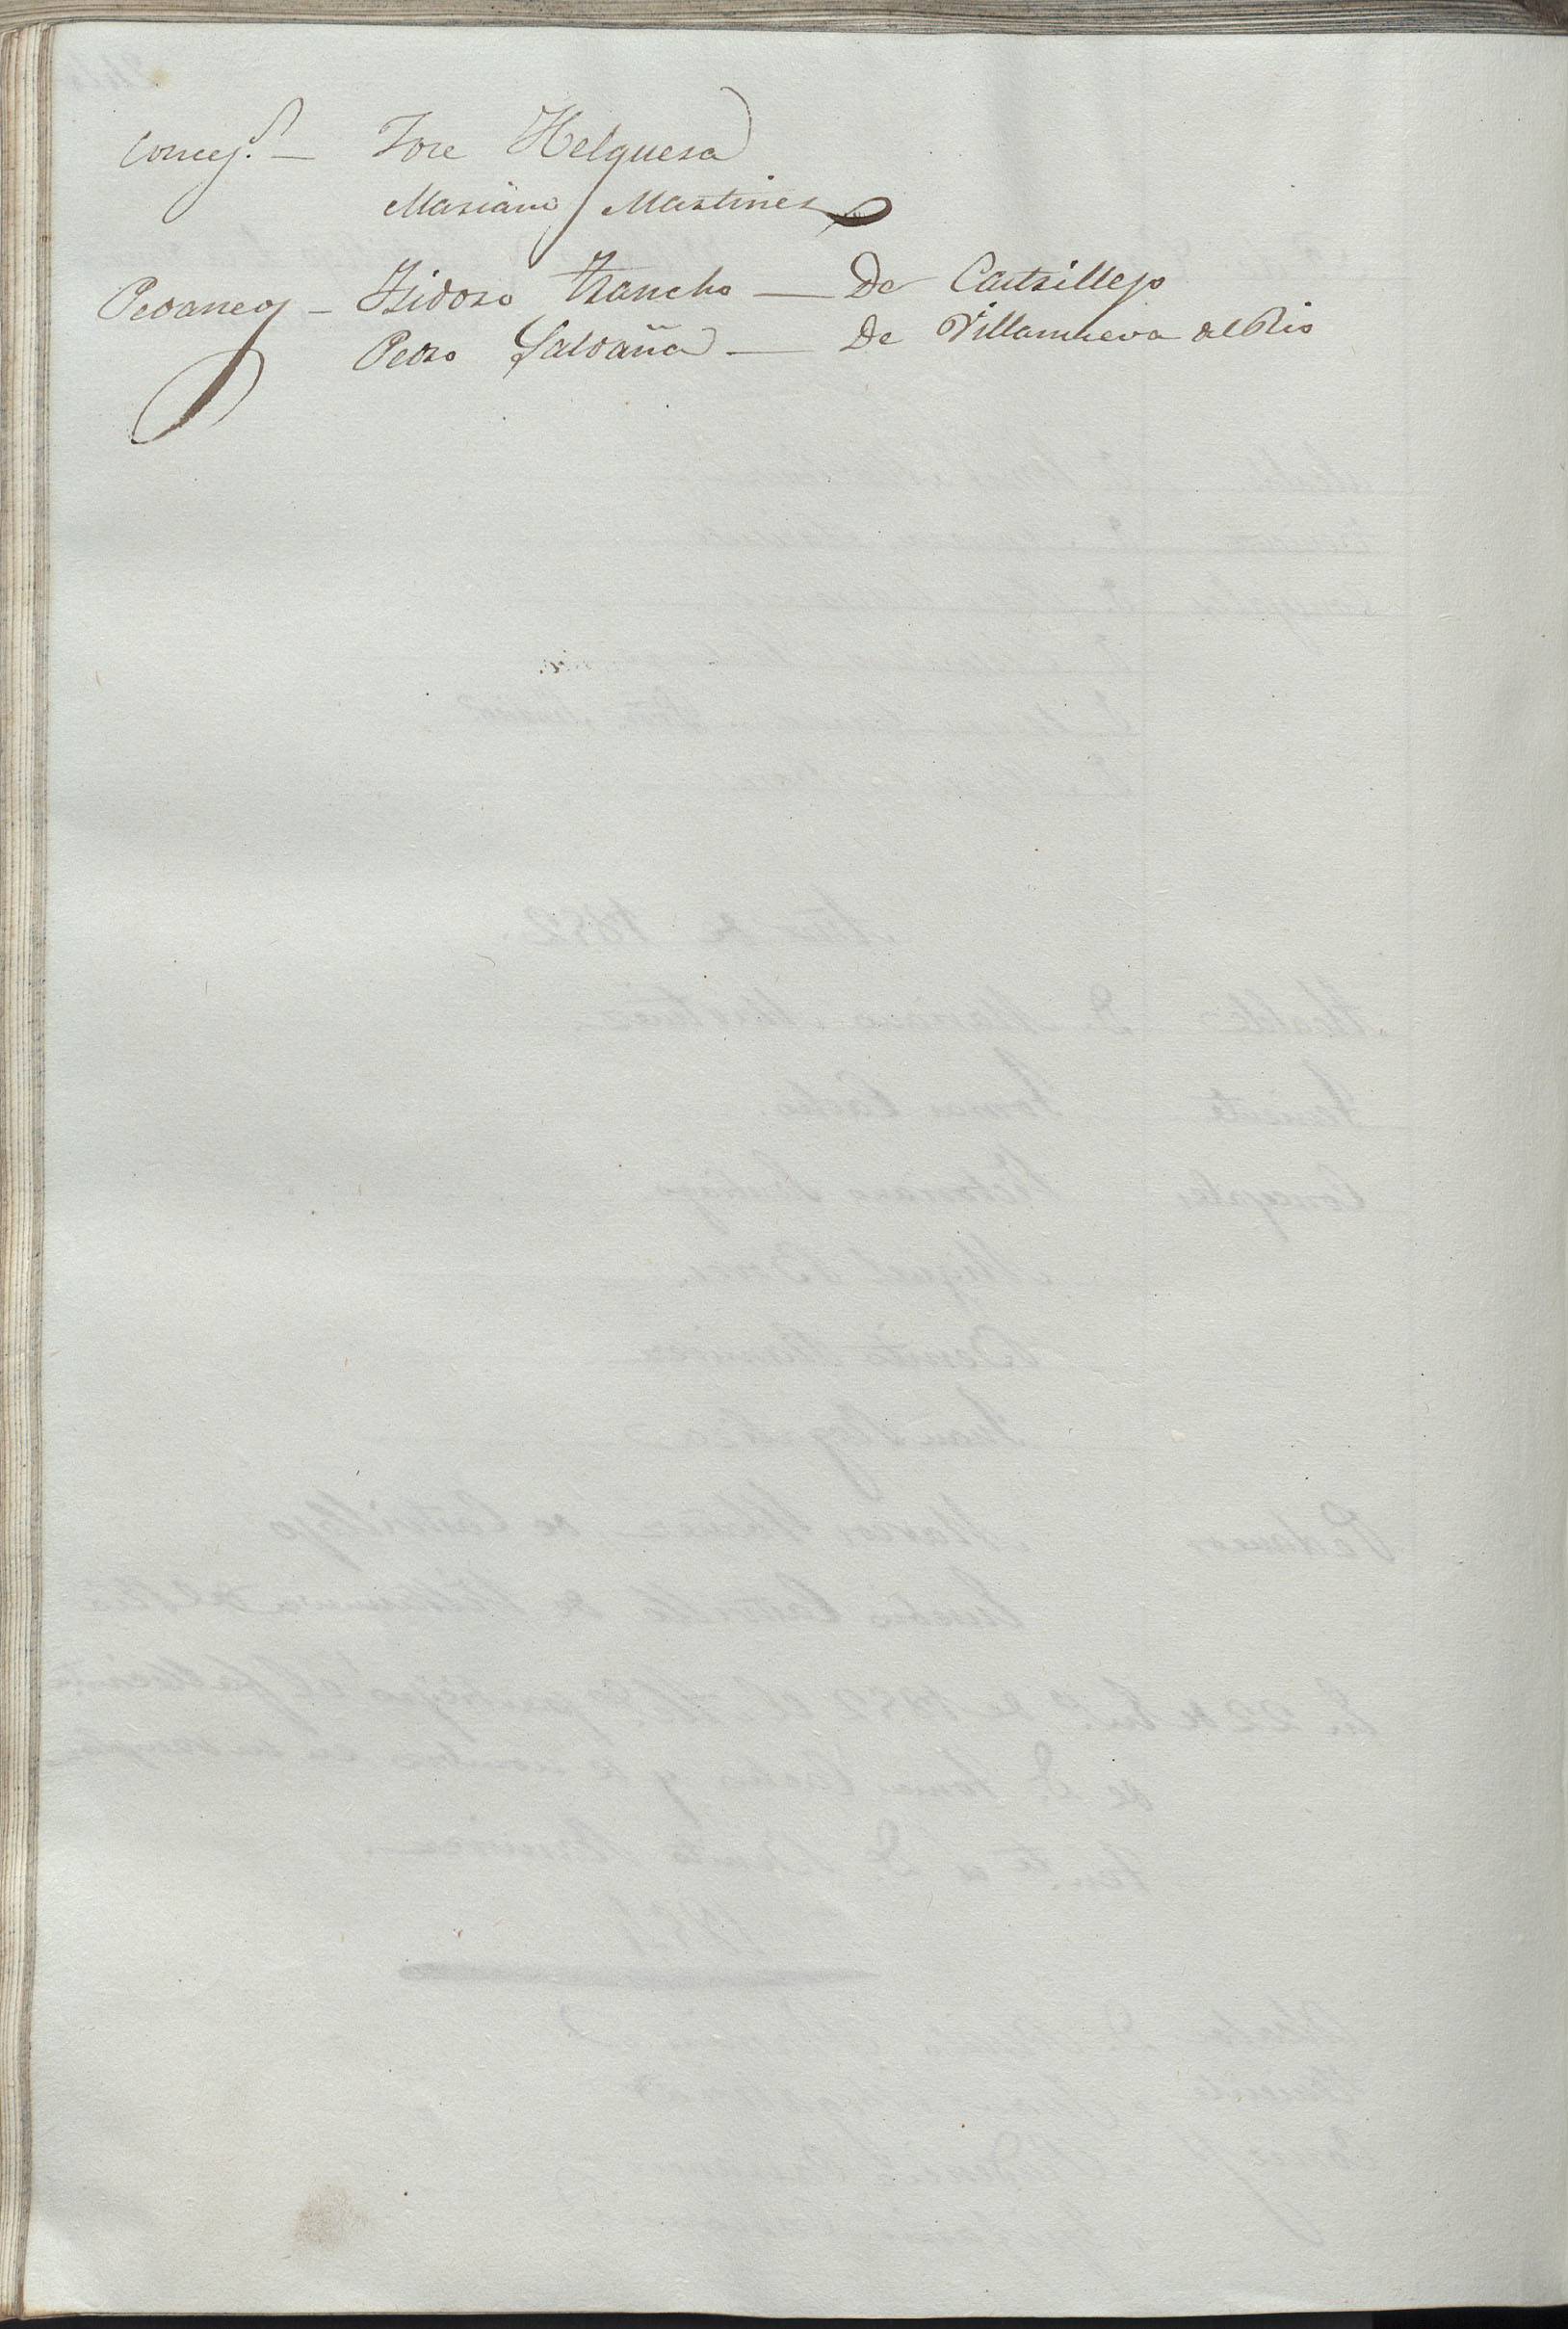 Concej.s — Jose Helguera
Mariano Martinez
Pedaneos — Isidoro Francho — De Castrillejo
Pedro Saldaña — De Villanueva del Rio